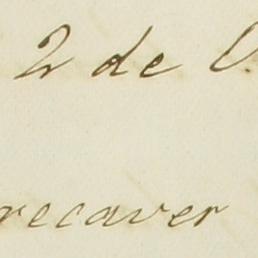 2 de
recaver